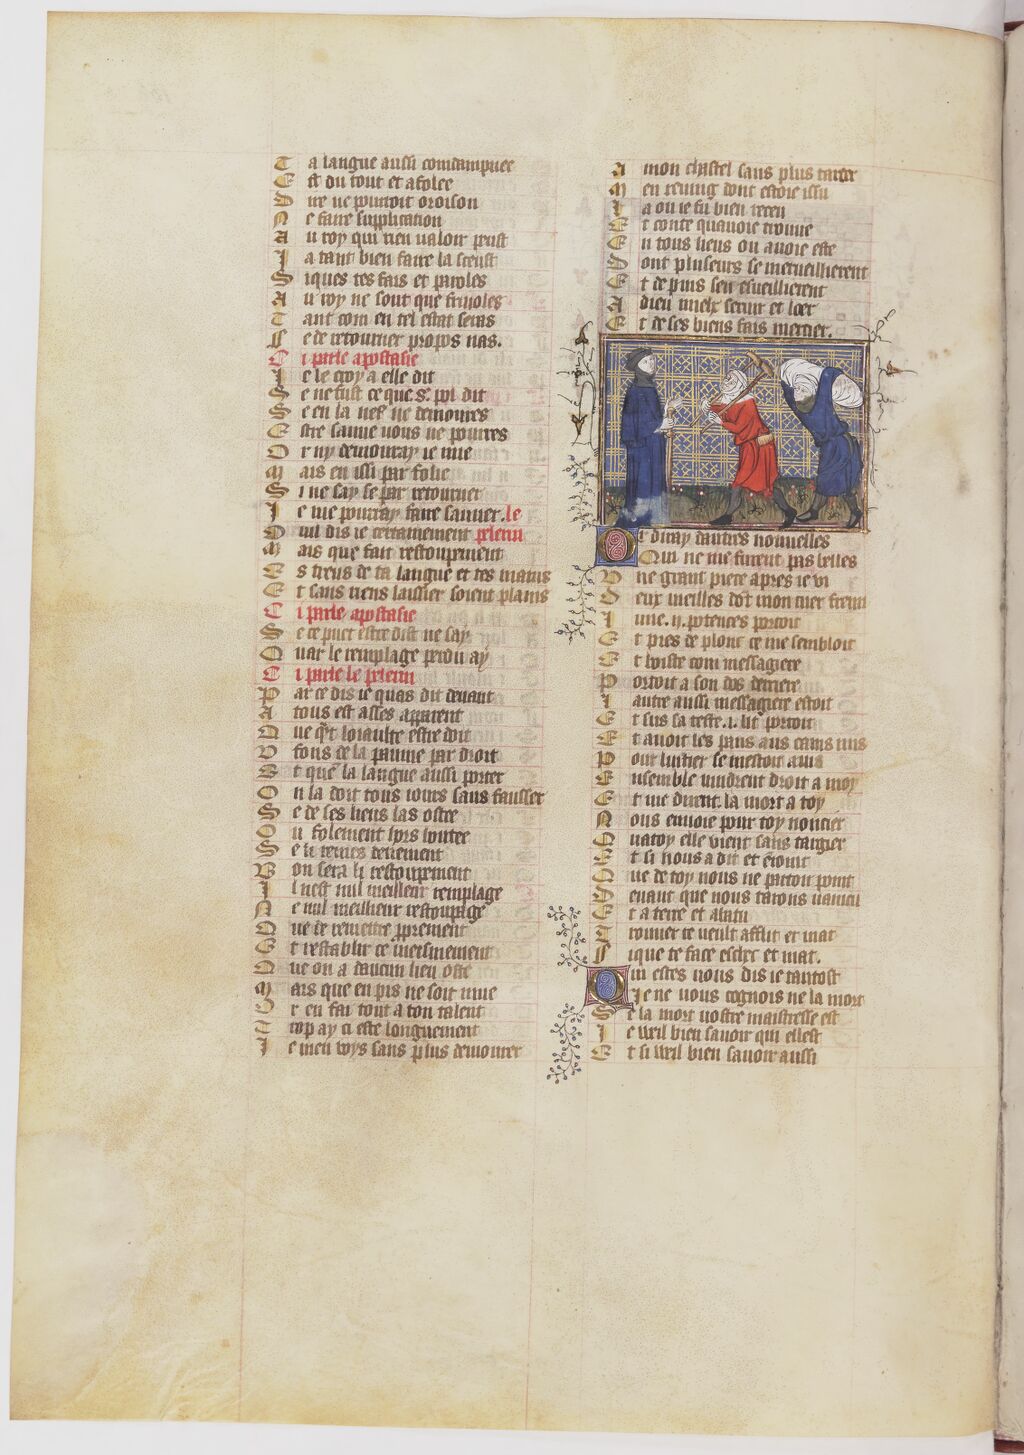 Ta langue aussi condampnee
Est du tout et afolee
Dire ne pourroit oroison
Ne faire supplication
Au roy qui rien valoir peust
Ja tant bien faire la sceust
Si ques tes fais et paroles
Au roy ne sont que friuoles
Tant com en tel estat seras
Se de retourner propos nas.
Ci parle apostasie
Je le croy a elle dit
Se ne fust ce que s. pol dit
Se en la nef ne demoures
Estre sauue vous ne pourres
Or ny demouray ie mie
Mais en issi par folie
Si ne say se par retourner
Je me pourray faire sauuer. le
Nul dis ie certainement pelerin
Mais que fait restoupement
Es treus de ta langue et tes mains
Et sans riens laissier soient plains
Ci parle apostasie
Se ce puet estre dist ne say
Quar le remplage perdu ay
Ci parle le pelerin
Par ce dis ie quas dit deuant
A tous est asses apparent
Que loiaulte estre doit
Fons de la paume par droit
Et que la langue aussi porter
On la doit tous iours sans fausser
Se de ses liens las oste
Ou folement hors boute
Se li remes
Bon sera li restoupement
Il nest nul meilleur remplage
Ne nul meilleur restoupage
Que de remettre proprement
Et restablir ce meismement
Que on a daucun lieu oste
Mais que en pis ne soit mue
Or en fai tout a ton talent
Trop ay ci este longuement
Je men voys sans plus demourer
A mon chastel sans plus tarder
Men reuing dont estoie issu
La ou ie fu bien receu
Et conte quauoie trouue
En tous liens ou auoie este
Dont pluseurs se merueillierent
Et depuis sen esueillierent
A dieu miex seruir et loer
Et de ses biens fais mercier.
Or diray dautres nouuelles
Qui ne me furent pas belles
Une grant piece apres ie vi
Deux vieilles dont mon cuer fremi
Lune .ij. potences portoit
Et pres de plonc ce me sembloit
Et boiste com messagiere
Portoit a son dos derriere
Lautre aussi messagiere estoit
Et sus sa teste .i. lit portoit
Et auoit les pans aus cains mis
Pour luitier se mestoit auis
Ensemble vindrent droit a moy
Et me dirent. la mort a toy
Nous enuoie pour toy noncier
Qua toy elle vient sans targier
Et si nous a dit et enioint
Que de toy nous ne partons point
Deuant que nous taions vaincu
Et a terre et abatu
Trouuer te veult afflit et mat
Si que te face eschec et mat.
Qui estes vous dis ie tantost
Je ne vous cognois ne la mort
Se la mort vostre maistresse est
Je vueil bien sauoir qui elle est
Et si vueil bien sauoir aussi